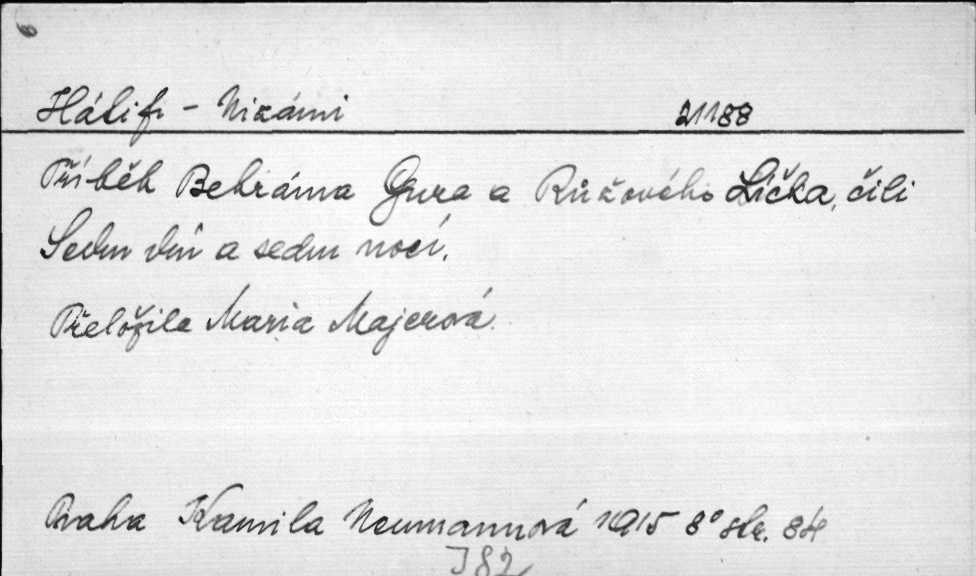 6
Hátifi - Nizámi 21188
Příběh Behráma Gura a Růžového Líčka, čili
Sedm dní a sedm nocí.
Přeložila Maria Majerová.
Praha Kamila Neumannová 1915 8° str. 84
J 82